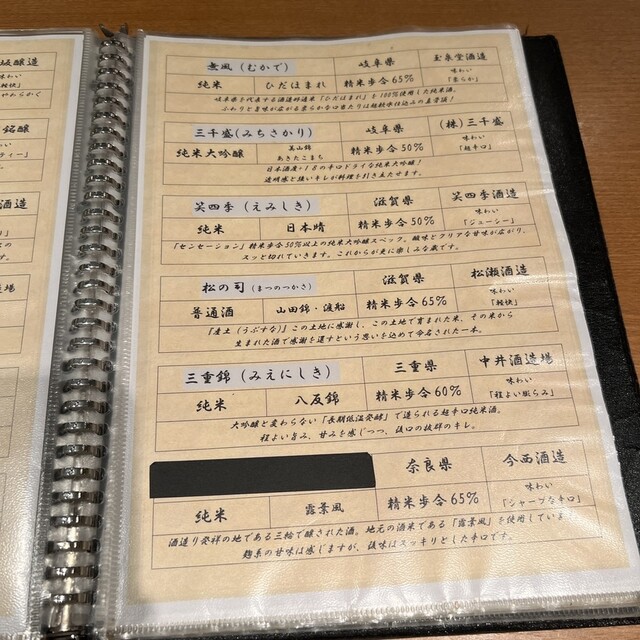 坂醸造
味わい
「軽快」
やわらかく
銘醸
酒造
無風（むかで）　岐阜県　玉泉堂酒造
純米　ひだほまれ　精米歩合65%　味わい
「柔らか」
岐阜県を代表する酒造好適米「ひだほまれ」を100%使用した純米酒。
ふわりと旨味が広がる柔らかな口当たりは超軟水仕込みの真骨頂！
三千盛（みちさかり）　岐阜県　（株）三千盛
純米大吟醸　美山錦　精米歩合50%　味わい
あきたこまち　「超辛口」
日本酒度+18の辛口ドライな純米大吟醸！
透明感と強いキレが料理を引き立たせます。
笑四季（えみしき）　滋賀県　笑四季酒造
純米　日本晴　精米歩合50%　味わい
「ジューシー」
「センセーション」精米歩合50%以上の純米大吟醸スペック。酸味とクリアな甘味が広がり、
スッと切れていきます。これからが更に楽しみな蔵です。
松の司（まつのつかさ）　滋賀県　松瀬酒造
普通酒　山田錦・渡船　精米歩合65%　味わい
「軽快」
『産土（うぶすな）』この土地に感謝し、この土地で育まれた米、その米から
生まれた酒で感謝を還すという思いを込めて命名された一本。
三重錦（みえにしき）　三重県　中井酒造場
純米　八反錦　精米歩合60%　味わい
「程よい膨らみ」
大吟醸と変わらない「長期低温発酵」で造られる超辛口純米酒。
程よい旨み、甘みを感じつつ、後口の抜群のキレ。
奈良県　今西酒造
純米　露葉風　精米歩合65%　味わい
「シャープな辛口」
酒造り発祥の地である三輪で醸された酒。地元の酒米である「露葉風」を使用しています。
麹系の甘味は感じますが、後味はスッキリとした辛口です。